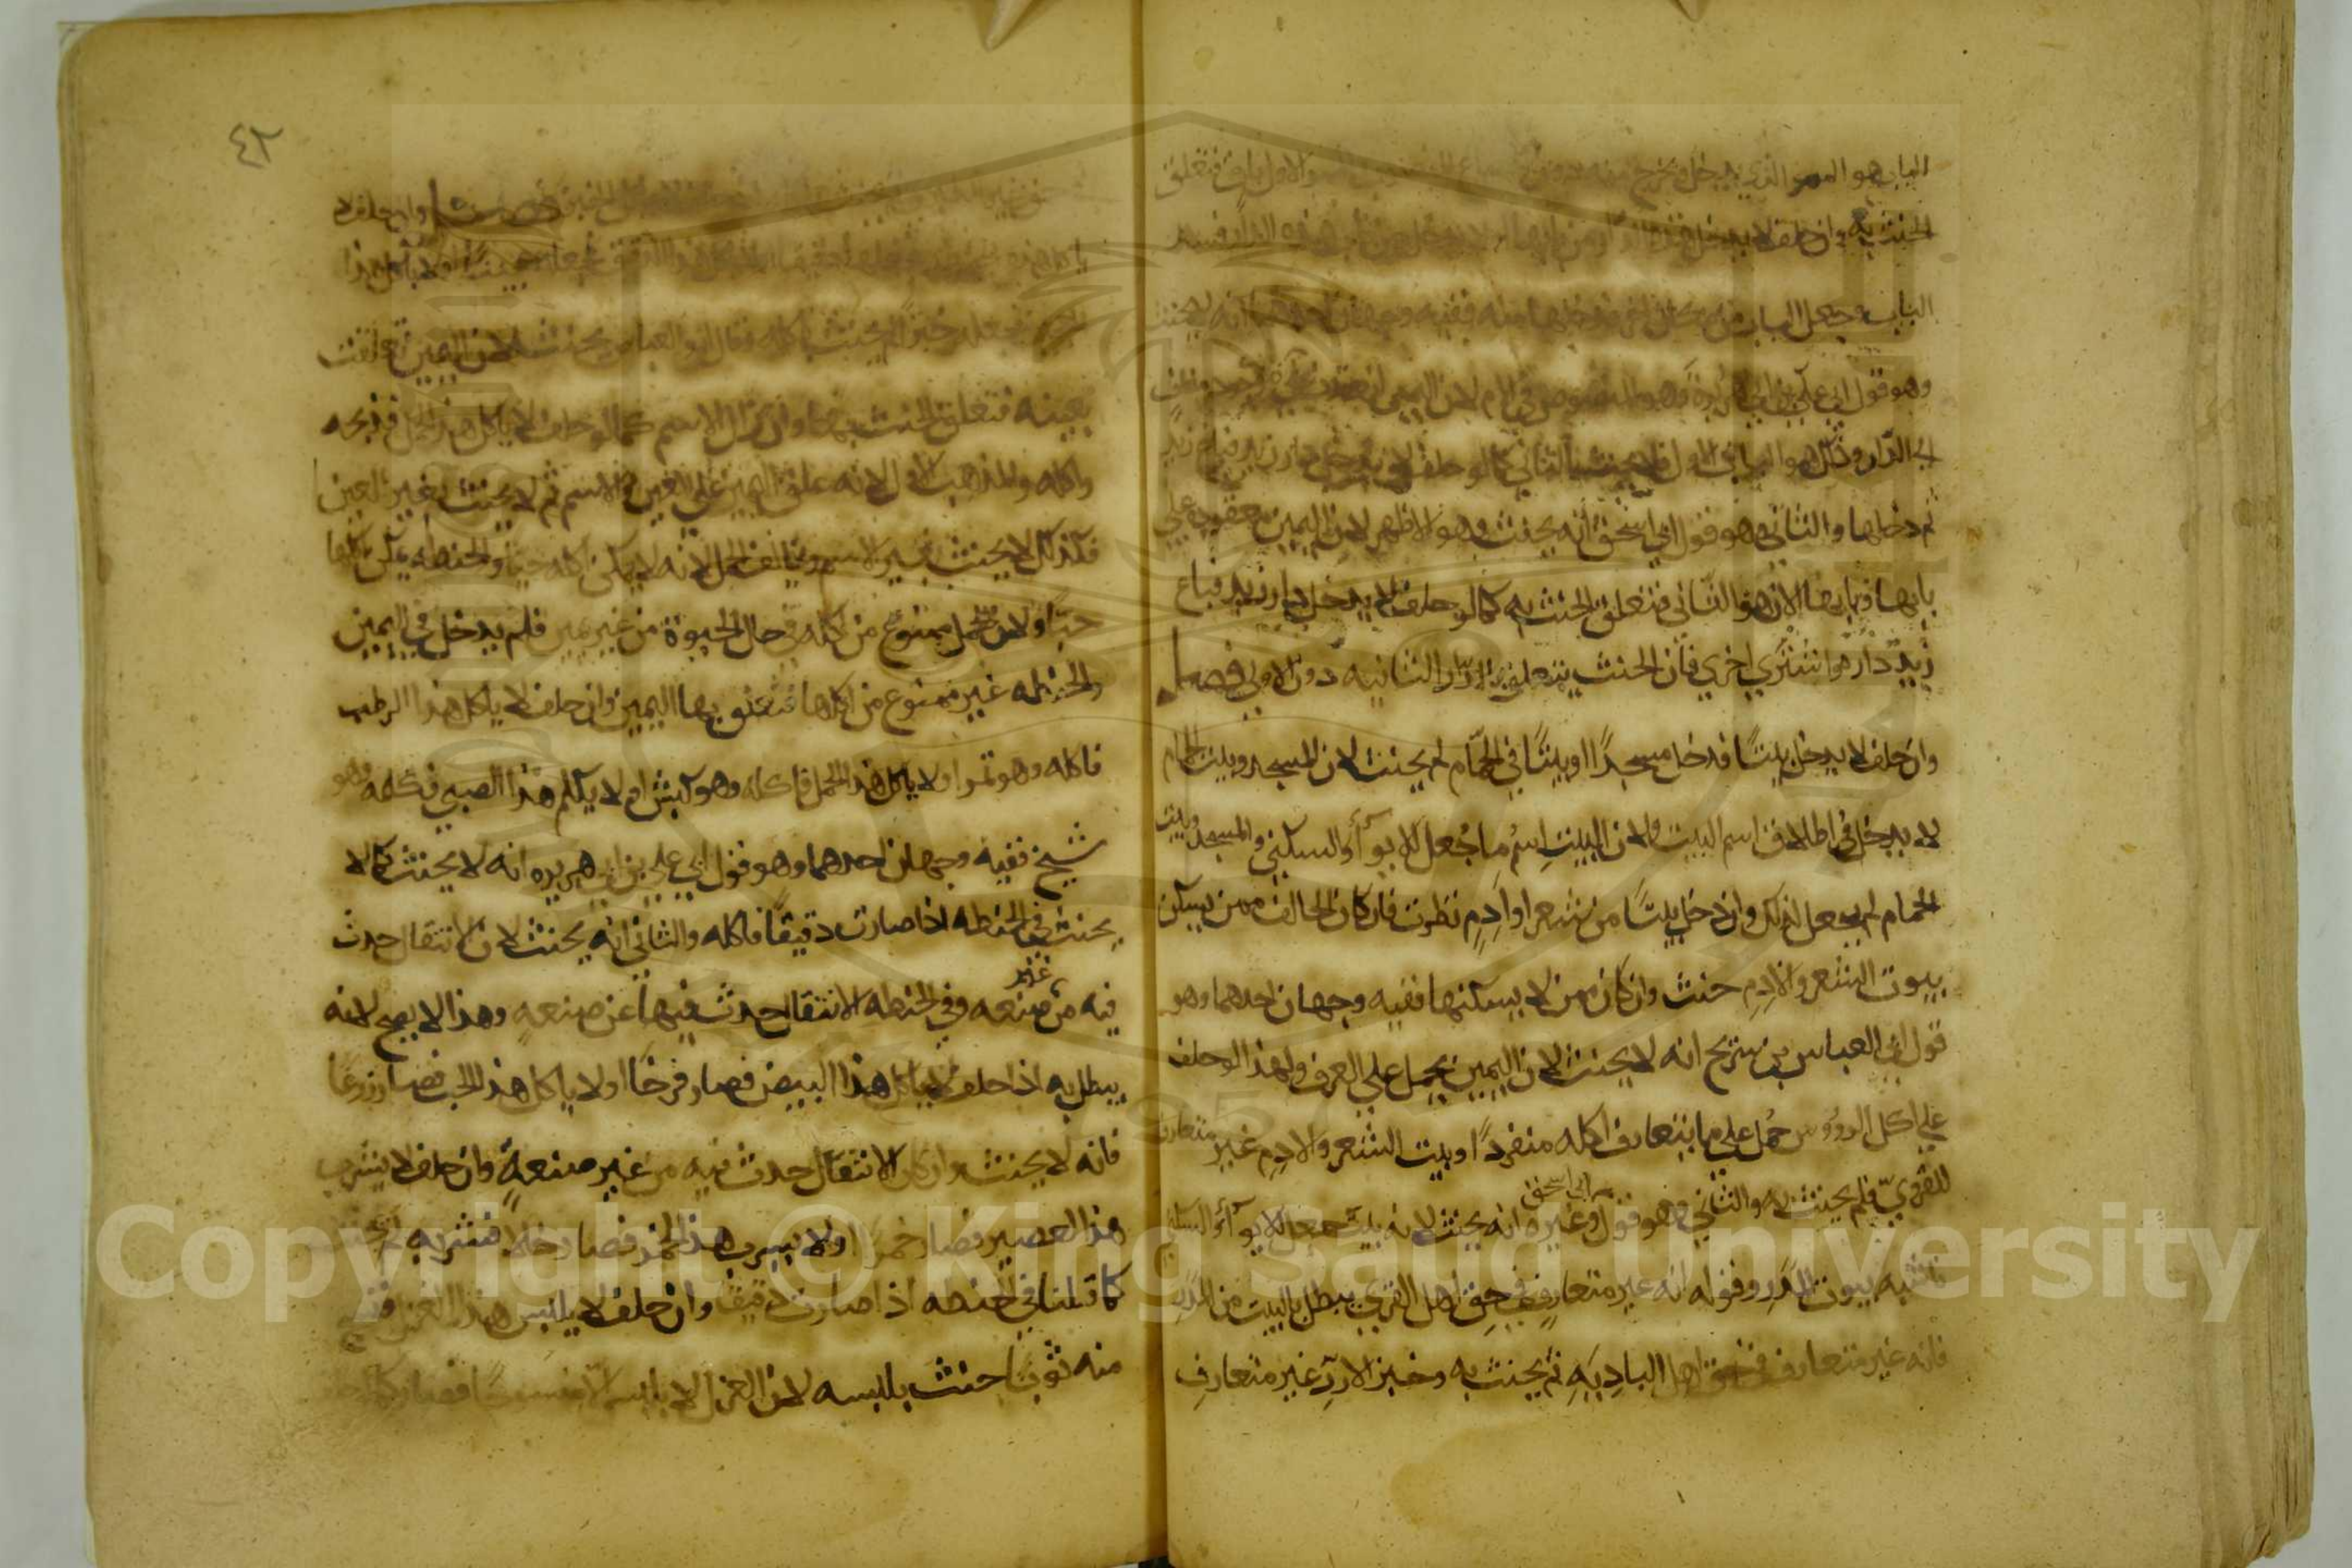 الباب هو الممر الذي يدخل ويخرج منه دون الاول باق فتعلق
الحنث به وان حلف لا يدخل هذه الدار من بابها او لا يدخل من باب هذه الدار فسد
الباب وجعل الباب في مكان اخر فدخلها منه ففيه وجهان احدهما انه لا يحنث
وهو قول ابي علي بن ابي هريرة وهو المنصوص في الام لان اليمين انعقدت
الدار وذلك هو الباب الاول فلا يحنث بالثاني كما لو حلف لا يدخل دار زيد فباع زيد
ثم دخلها والثاني وهو قول ابي اسحق انه يحنث وهو الاظهر لان اليمين معقودة علي
بابها وبابها الان هو الثاني فتعلق الحنث به كما لو حلف لا يدخل دار زيد فباع
زيد داره واشتري اخري فان الحنث يتعلق بالدار الثانيه دون الاولي فصل
وان حلف لا يدخل بيتًا فدخل مسجدًا او بيتًا في الحمّام لم يحنث لان المسجد وبيت الحمام
لا يدخل في اطلاق اسم البيت ولان البيت اسم ما جُعل للايوآء والسكني والمسجد وبيت
الحمام لم يجعل لذلك وان دخل بيتًا من شعر او ادم نظرت فان كان الحالف ممن يسكن
بيوت الشعر والادم حنث وان كان ممن لا يسكنها ففيه وجهان احدهما وهو
قول ابي العباس بن سريج انه لا يحنث لان اليمين يحمل علي العرف ولهذا لو حلف
علي اكل الرؤوس حُمل علي ما يتعارف اكله منفردًا وبيت الشعر والادم غير متعارف
للقرويّ فلم يحنث به والثاني وهو قول ابي اسحق وغيره انه يحنث لانه بيت جعل للايوآء والسكني
فاشبه بيوت المدر وقوله انه غير متعارف في حق اهل القري يبطل بالبيت من المدر
فانه غير متعارف في حق اهل الباديَهِ ثم يحنث به وخبز الارز غير متعارف
فصل وان حلف لا
ياكل هذه الحنطة فجعلها دقيقا او لا ياكل هذا الدقيق فجعله عجينا او لا ياكل هذا
العجين فجعله خبزًا لم يحنث باكله وقال ابو العباس يحنث لان اليمين تعلقت
بعينه فتعلق الحنث بها وان زال الاسم كما لو حلف لا ياكل هذا الحمل فذبحه
واكله والمذهب الاول لانه علق اليمين علي العين والاسم ثم لا يحنث بغير العين
فكذلك لا يحنث بغير الاسم ويخالف الحمل لانه لا يمكن اكله حيًا والحنطه يمكن اكلها
حبًا ولان الحمل ممنوع من اكله في حال الحيوة من غير يمين فلم يدخل في اليمين
والحنطه غير ممنوع من اكلها فتعلق بها اليمين وان حلف لا ياكل هذا الرطب
فاكله وهو تمر او لا ياكل هذا الحمل فاكله وهو كبش او لا يكلم هذا الصبي فكلمه وهو
شيخ ففيه وجهان احدهما وهو قول ابي علي بن ابي هريره انه لا يحنث كما لا
يحنث في الحنطه اذا صارت دقيقًا فاكله والثاني انه يحنث لان الانتقال حدث
فيه من غير صنعه وفي الحنطه الانتقال حدث فيها عن صنعه وهذا لا يصح لانه
يبطل به اذا حلف لا ياكل هذا البيض فصار فرخًا او لا ياكل هذا الحب فصار زرعًا
فانه لا يحنث وان كان الانتقال حدث فيه من غير صنعةٍ وان حلف لا يشرب
هذا العصير فصار خمرًا او لا يشرب هذا الخمر فصار خلاً فشربه لم يحنث
كما قلنا في الحنطه اذا صارت دقيقا وان حلف لا يلبس هذا الغزل فنسج
منه ثوبًا حنث بلبسه لان الغزل لا يلبس الا منسوجًا فصار
٤٢
Copyright © King Saud University